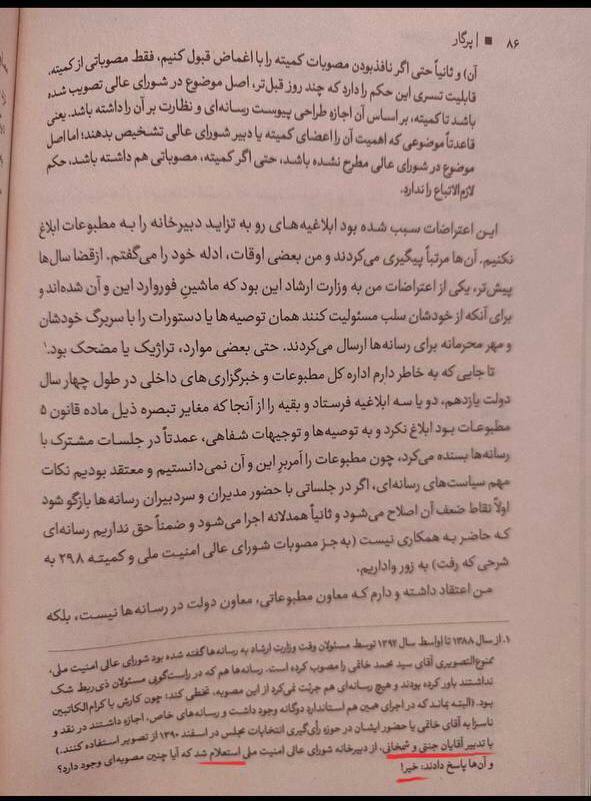 ۸۶ ■ | پرگار
آن) و ثانیاً حتی اگر نافذبودن مصوبات کمیته را با اغماض قبول کنیم، فقط مصوباتی از کمیته،
قابلیت تسری این حکم را دارد که چند روز قبل‌تر، اصل موضوع در شورای عالی تصویب شده
باشد تا کمیته، بر اساس آن اجازه طراحی پیوست رسانه‌ای و نظارت بر آن را داشته باشد. یعنی
قاعدتاً موضوعی که اهمیت آن را اعضای کمیته یا دبیر شورای عالی تشخیص بدهند؛ اما اصل
موضوع در شورای عالی مطرح نشده باشد، حتی اگر کمیته، مصوباتی هم داشته باشد، حکم
لازم‌الاتباع را ندارد.
این اعتراضات سبب شده بود ابلاغیه‌های رو به تزاید دبیرخانه را به مطبوعات ابلاغ
نکنیم. آن‌ها مرتباً پیگیری می‌کردند و من بعضی اوقات، ادله خود را می‌گفتم. ازقضا سال‌ها
پیش‌تر، یکی از اعتراضات من به وزارت ارشاد این بود که ماشینِ فوروارد این و آن شده‌اند و
برای آنکه از خودشان سلب مسئولیت کنند همان توصیه‌ها یا دستورات را با سربرگ خودشان
و مهر محرمانه برای رسانه‌ها ارسال می‌کردند. حتی بعضی موارد، تراژیک یا مضحک بود.۱
تا جایی که به خاطر دارم اداره کل مطبوعات و خبرگزاری‌های داخلی در طول چهار سال
دولت یازدهم، دو یا سه ابلاغیه فرستاد و بقیه را از آنجا که مغایر تبصره ذیل ماده قانون ۵
مطبوعات بود ابلاغ نکرد و به توصیه‌ها و توجیهات شفاهی، عمدتاً در جلسات مشترک با
رسانه‌ها بسنده می‌کرد، چون مطبوعات را آمربرِ این و آن نمی‌دانستیم و معتقد بودیم نکات
مهم سیاست‌های رسانه‌ای، اگر در جلساتی با حضور مدیران و سردبیران رسانه‌ها بازگو شود
اولاً نقاط ضعف آن اصلاح می‌شود و ثانیاً همدلانه اجرا می‌شود و ضمناً حق نداریم رسانه‌ای
که حاضر به همکاری نیست (به جز مصوبات شورای عالی امنیت ملی و کمیته ۲۹۸ به
شرحی که رفت) به زور واداریم.
من اعتقاد داشته و دارم که معاون مطبوعاتی، معاون دولت در رسانه‌ها نیست، بلکه
۱. از سال ۱۳۸۸ تا اواسط سال ۱۳۹۲ توسط مسئولان وقت وزارت ارشاد به رسانه‌ها گفته شده بود شورای عالی امنیت ملی،
ممنوع‌التصویری آقای سید محمد خاتمی را مصوب کرده است. رسانه‌ها هم که در راست‌گویی مسئولان ذی‌ربط شک
نداشتند باور کرده بودند و هیچ رسانه‌ای هم جرئت نمی‌کرد از این مصوبه، تخطی کند؛ چون کارش با کرام‌الکاتبین
بود. (البته بماند که در اجرای همین هم استاندارد دوگانه وجود داشت و رسانه‌های خاص، اجازه داشتند در نقد و
ناسزا به آقای خاتمی یا حضور ایشان در حوزه رأی‌گیری انتخابات مجلس در اسفند ۱۳۹۰ از تصویر استفاده کنند.)
با تدبیر آقایان جنتی و شمخانی، از دبیرخانه شورای عالی امنیت ملی استعلام شد که آیا چنین مصوبه‌ای وجود دارد؟
و آن‌ها پاسخ دادند: خیر!